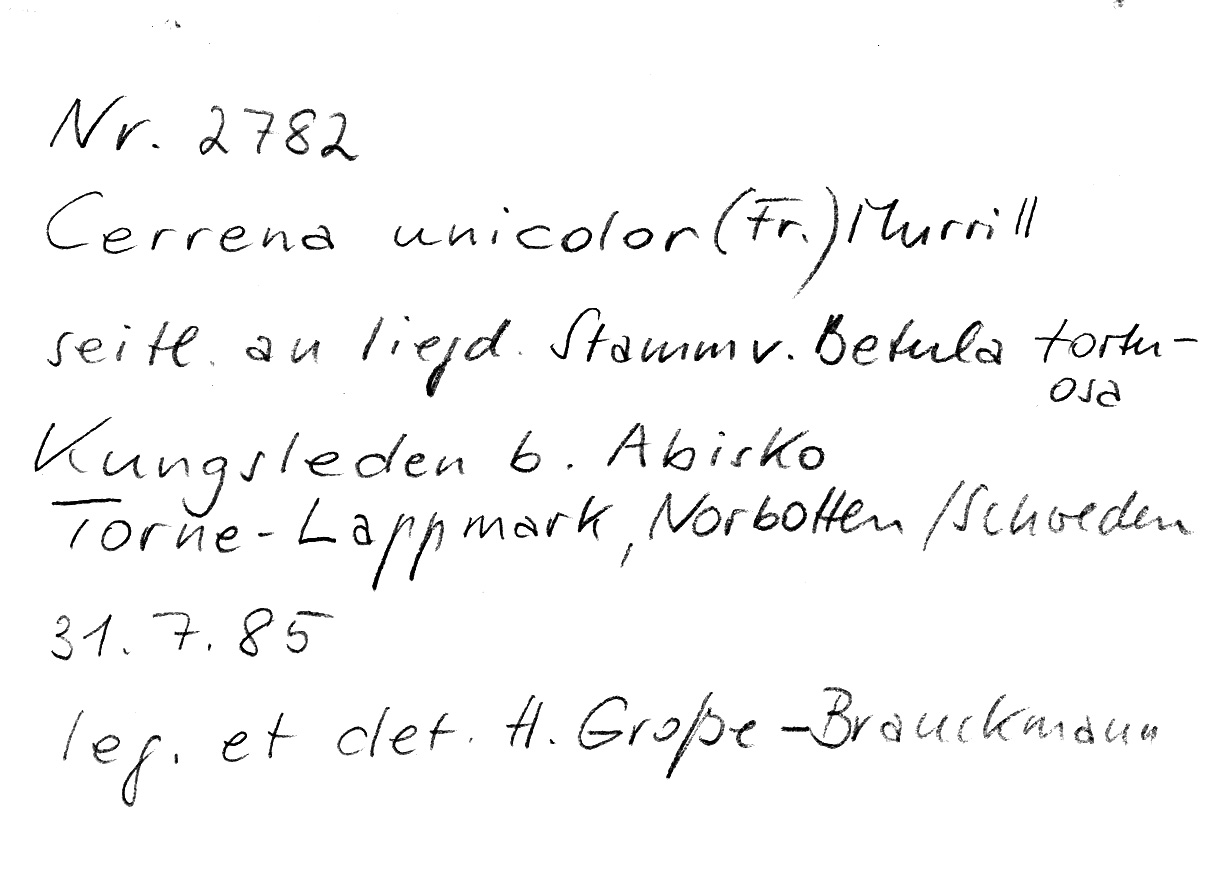 Nr. 2782
Cerrena unicolor (Fr.) Murrill
seitl. an liegd. Stamm v. Betula tortu-
osa
Kungsleden b. Abisko
Torne-Lappmark, Norbotten / Schweden
31. 7. 85
leg. et det. H. Große-Brauckmann